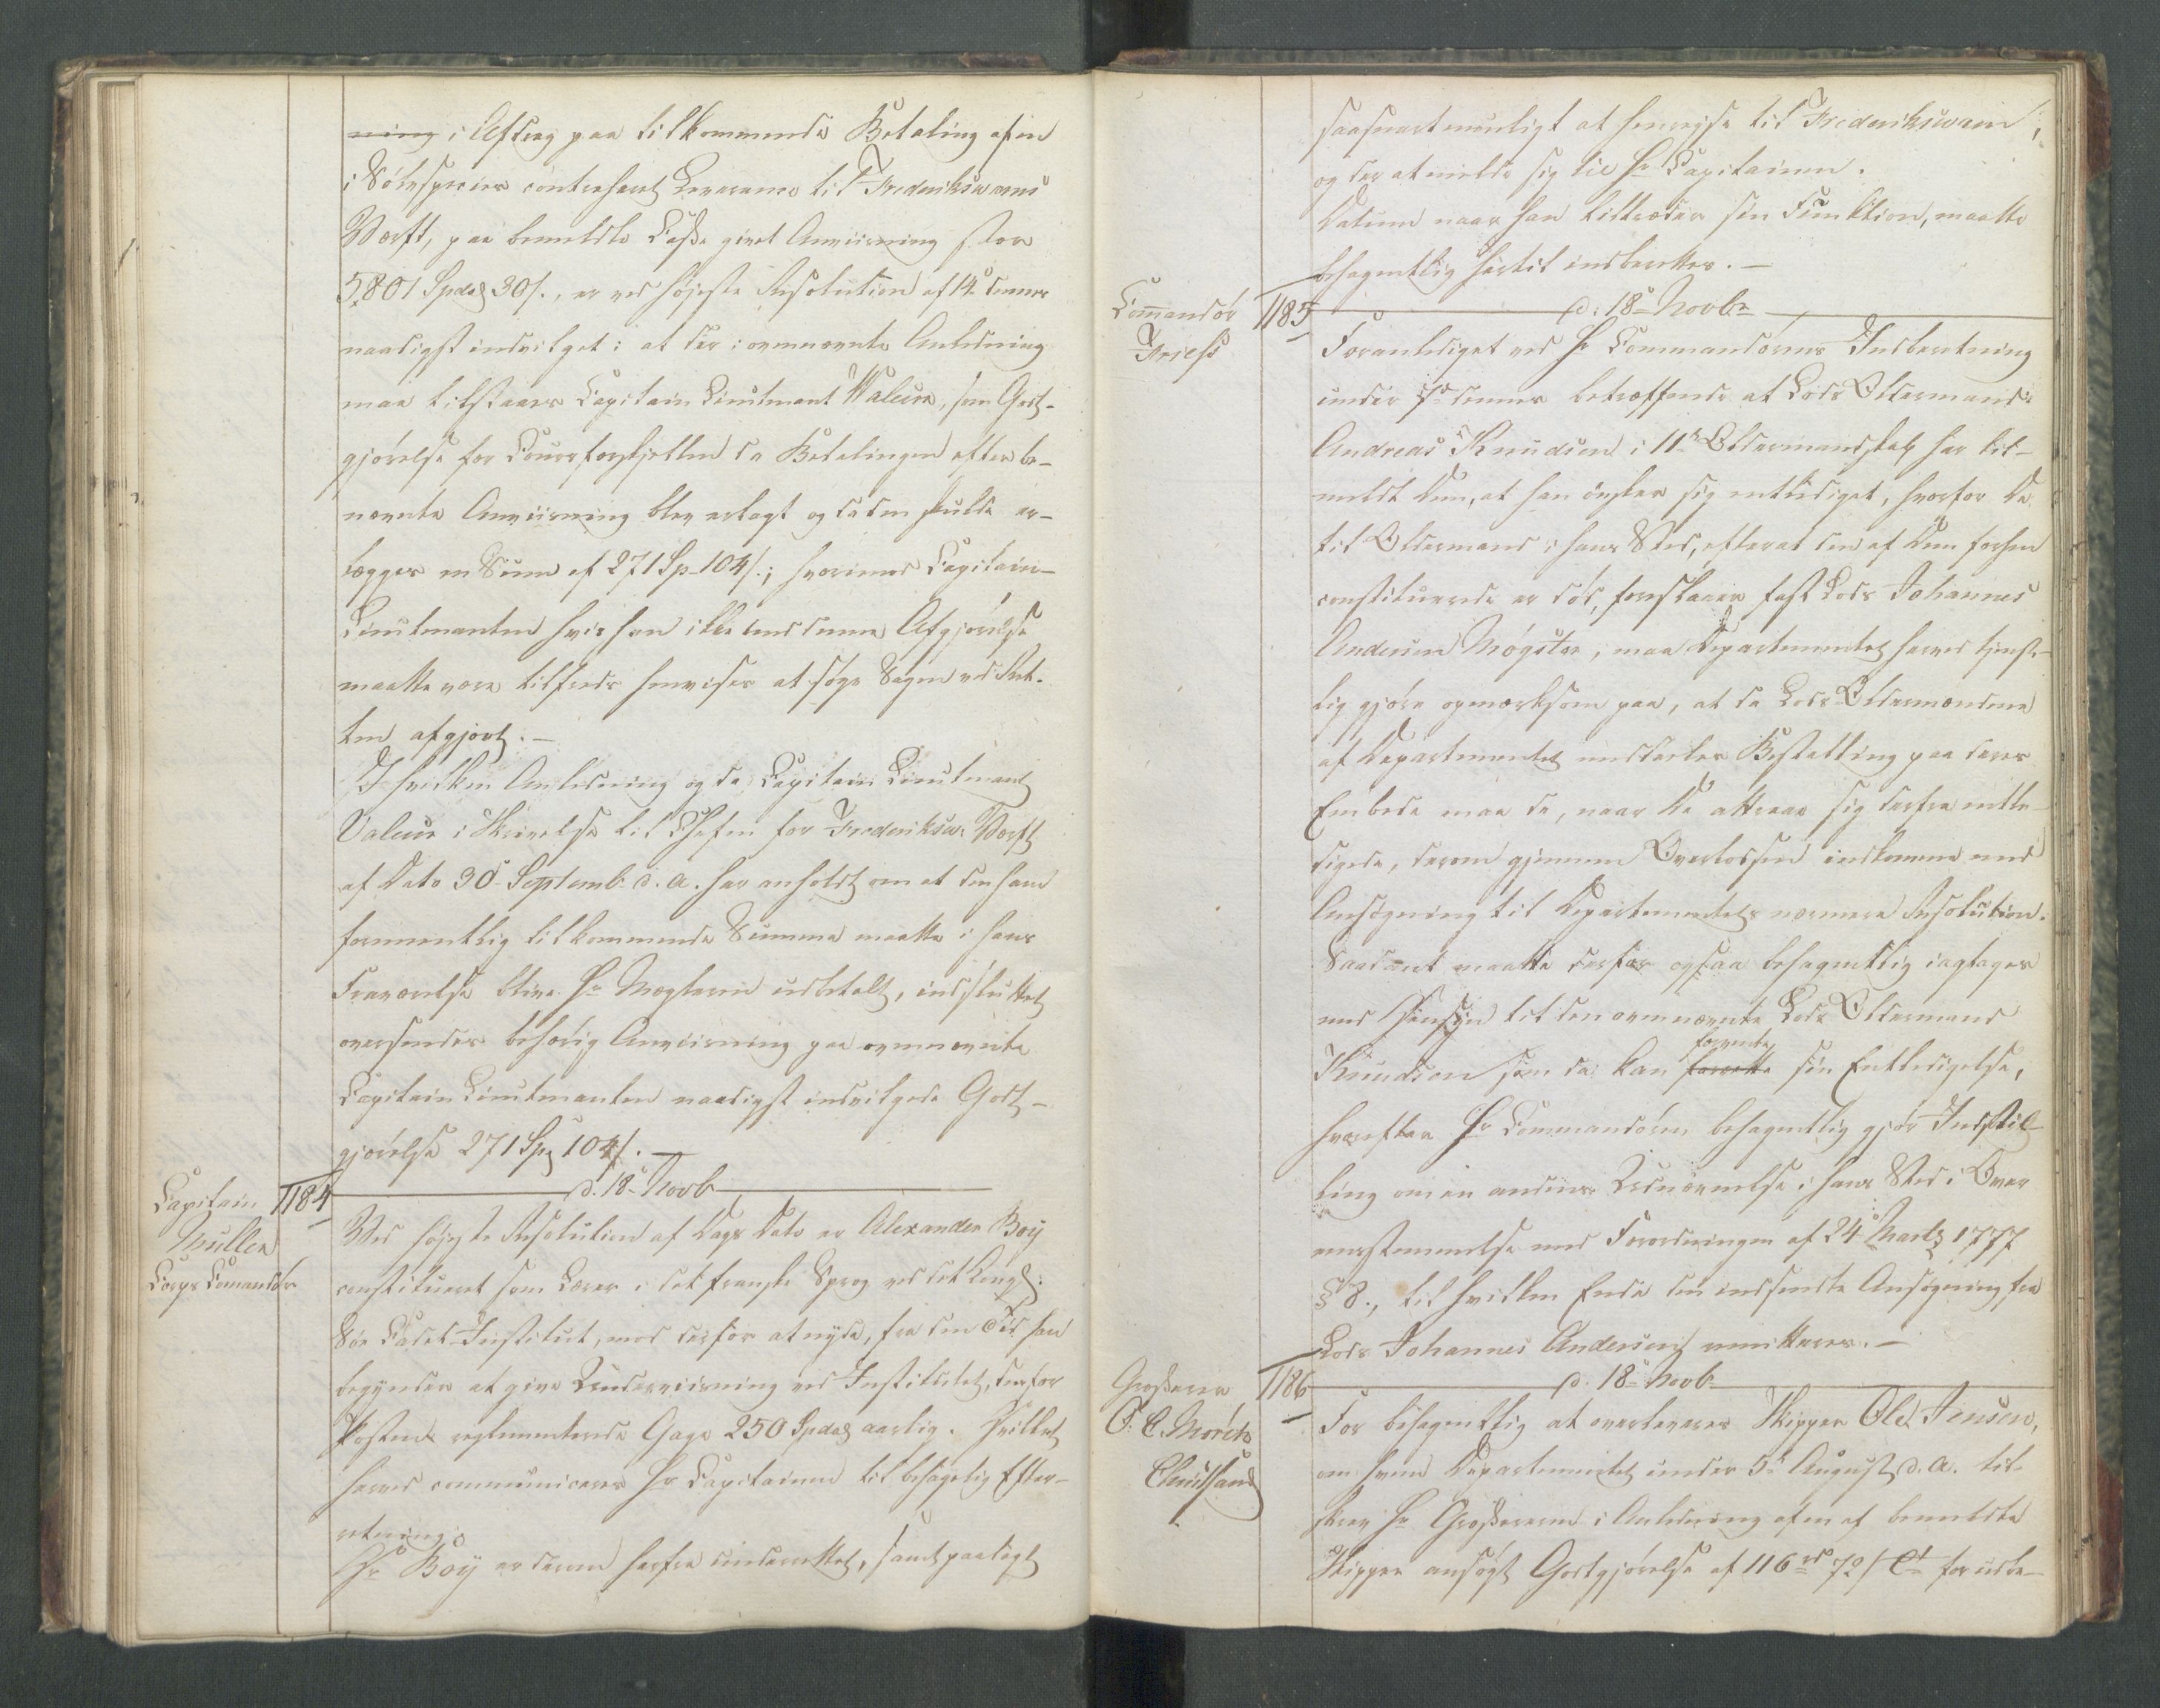 ning i Afdrag paa tilkommende Betaling af en
i Sölvspecies contraheret Leverance til Frederiksværns
Værft, paa bemeldte Casse givet Anviisning stor
5,801 Spd 30 s., er ved höjeste Resolution af 14 dennes
naadigst indvilget: at der i ovennævnte Anledning
maa tilstaaes Capitain Lieutenant Valeur, som Godt-
gjörelse for Coursforskjellen da Betalingen efter be-
nævnte Anviisning blev erlagt og da den skulde er-
lægges en Sum af 271 Sp 104 s.; hvorimod Capitain-
Lieutenanten hvis han ikke med denne Afgjörelse
maatte være tilfreds henvises at söge Sagen ved Ret-
ten afgjort. —
I hvilken Anledning og da Capitain Lieutenant
Valeur i Skrivelse til Chefen for Frederiksv. Værft
af Dato 30 Septemb. d. A. har anholdt om at den ham
formentlig tilkommende Summa maatte i hans
Fraværelse blive Hr Mægleren udbetalt, indsluttet
oversendes behörig Anviisning paa ovennævnte
Capitain Lieutenanten naadigst indvilgede Godt-
gjörelse 271 Sp 104 s. —
Capitain
Müller
Corps Comandör
1184
d. 18 Novb
Ved höjeste Resolution af Dags Dato er Alexander Boÿ
constitueret som Lærer i det franske Sprog ved det Kongl:
Söe Cadet-Institut, mod derfor at nyde, fra den Tid han
begynder at give Underviisning ved Institutet, den for
Posten reglementerede Gage 250 Spd aarlig. Hvilket
herved communiceres Hr Capitainen til behagelig Efter-
retning.
Hr Boÿ er derom herfra underrettet, samt paalagt
saasnart muligt at henrejse til Frederiksværn,
og der at melde sig til Hr Capitainen.
Datum naar han tiltræder sin Funktion, maatte
behagentlig hertil indberettes. —
Com̄andör
Friess
1185
d: 18 Novbr
Foranlediget ved Hr Commandörens Indberetning
under 7de dennes betræffende at Lods Oldermand
Andreas Knudsen i 11te Oldermandskab har til-
meldt Dem, at han önsker sig entlediget, hvorfor De
til Oldermand i hans Sted, efterat den af Dem forhen
constituerede er död, foreslaaer fast Lods Johannes
Andersen Møgster, maa Departementet herved tjenst-
lig gjöre opmærksom paa, at da Lods Oldermændene
af Departementet meddeles Bestalling paa deres
Embede maa de, naar De attraae sig derfra entle-
digede, derom gjennem Overlodsen indkomme med
Ansögning til Departementets nærmere Resolution.
Saadant maatte derfor ogsaa behagentlig iagtages
med Hensyn til den ovennævnte Lods Oldermand
Knudsen som da kan forrette forvente sin Entledigelse,
hvorefter Hr Commandören behagentlig gjör Indstil-
ling om en andens Udnævnelse i hans Sted i Over
eensstemmelse med Forordningen af 24 Marts 1777
§ 8., til hvilken Ende den indsendte Ansögning fra
Lods Johannes Andersen remitteres. —
Grosserer
O. C. Mörch
Christsand
1186
d. 18 Novb
For behagentlig at overleveres Skipper Ole Jensen,
om hvem Departementet under 5te August d. A. til-
skrev Hr Grossereren i Anledning af en af bemeldte
Skipper ansögt Godtgjörelse af 116 rd 72 s Ct for udbe-